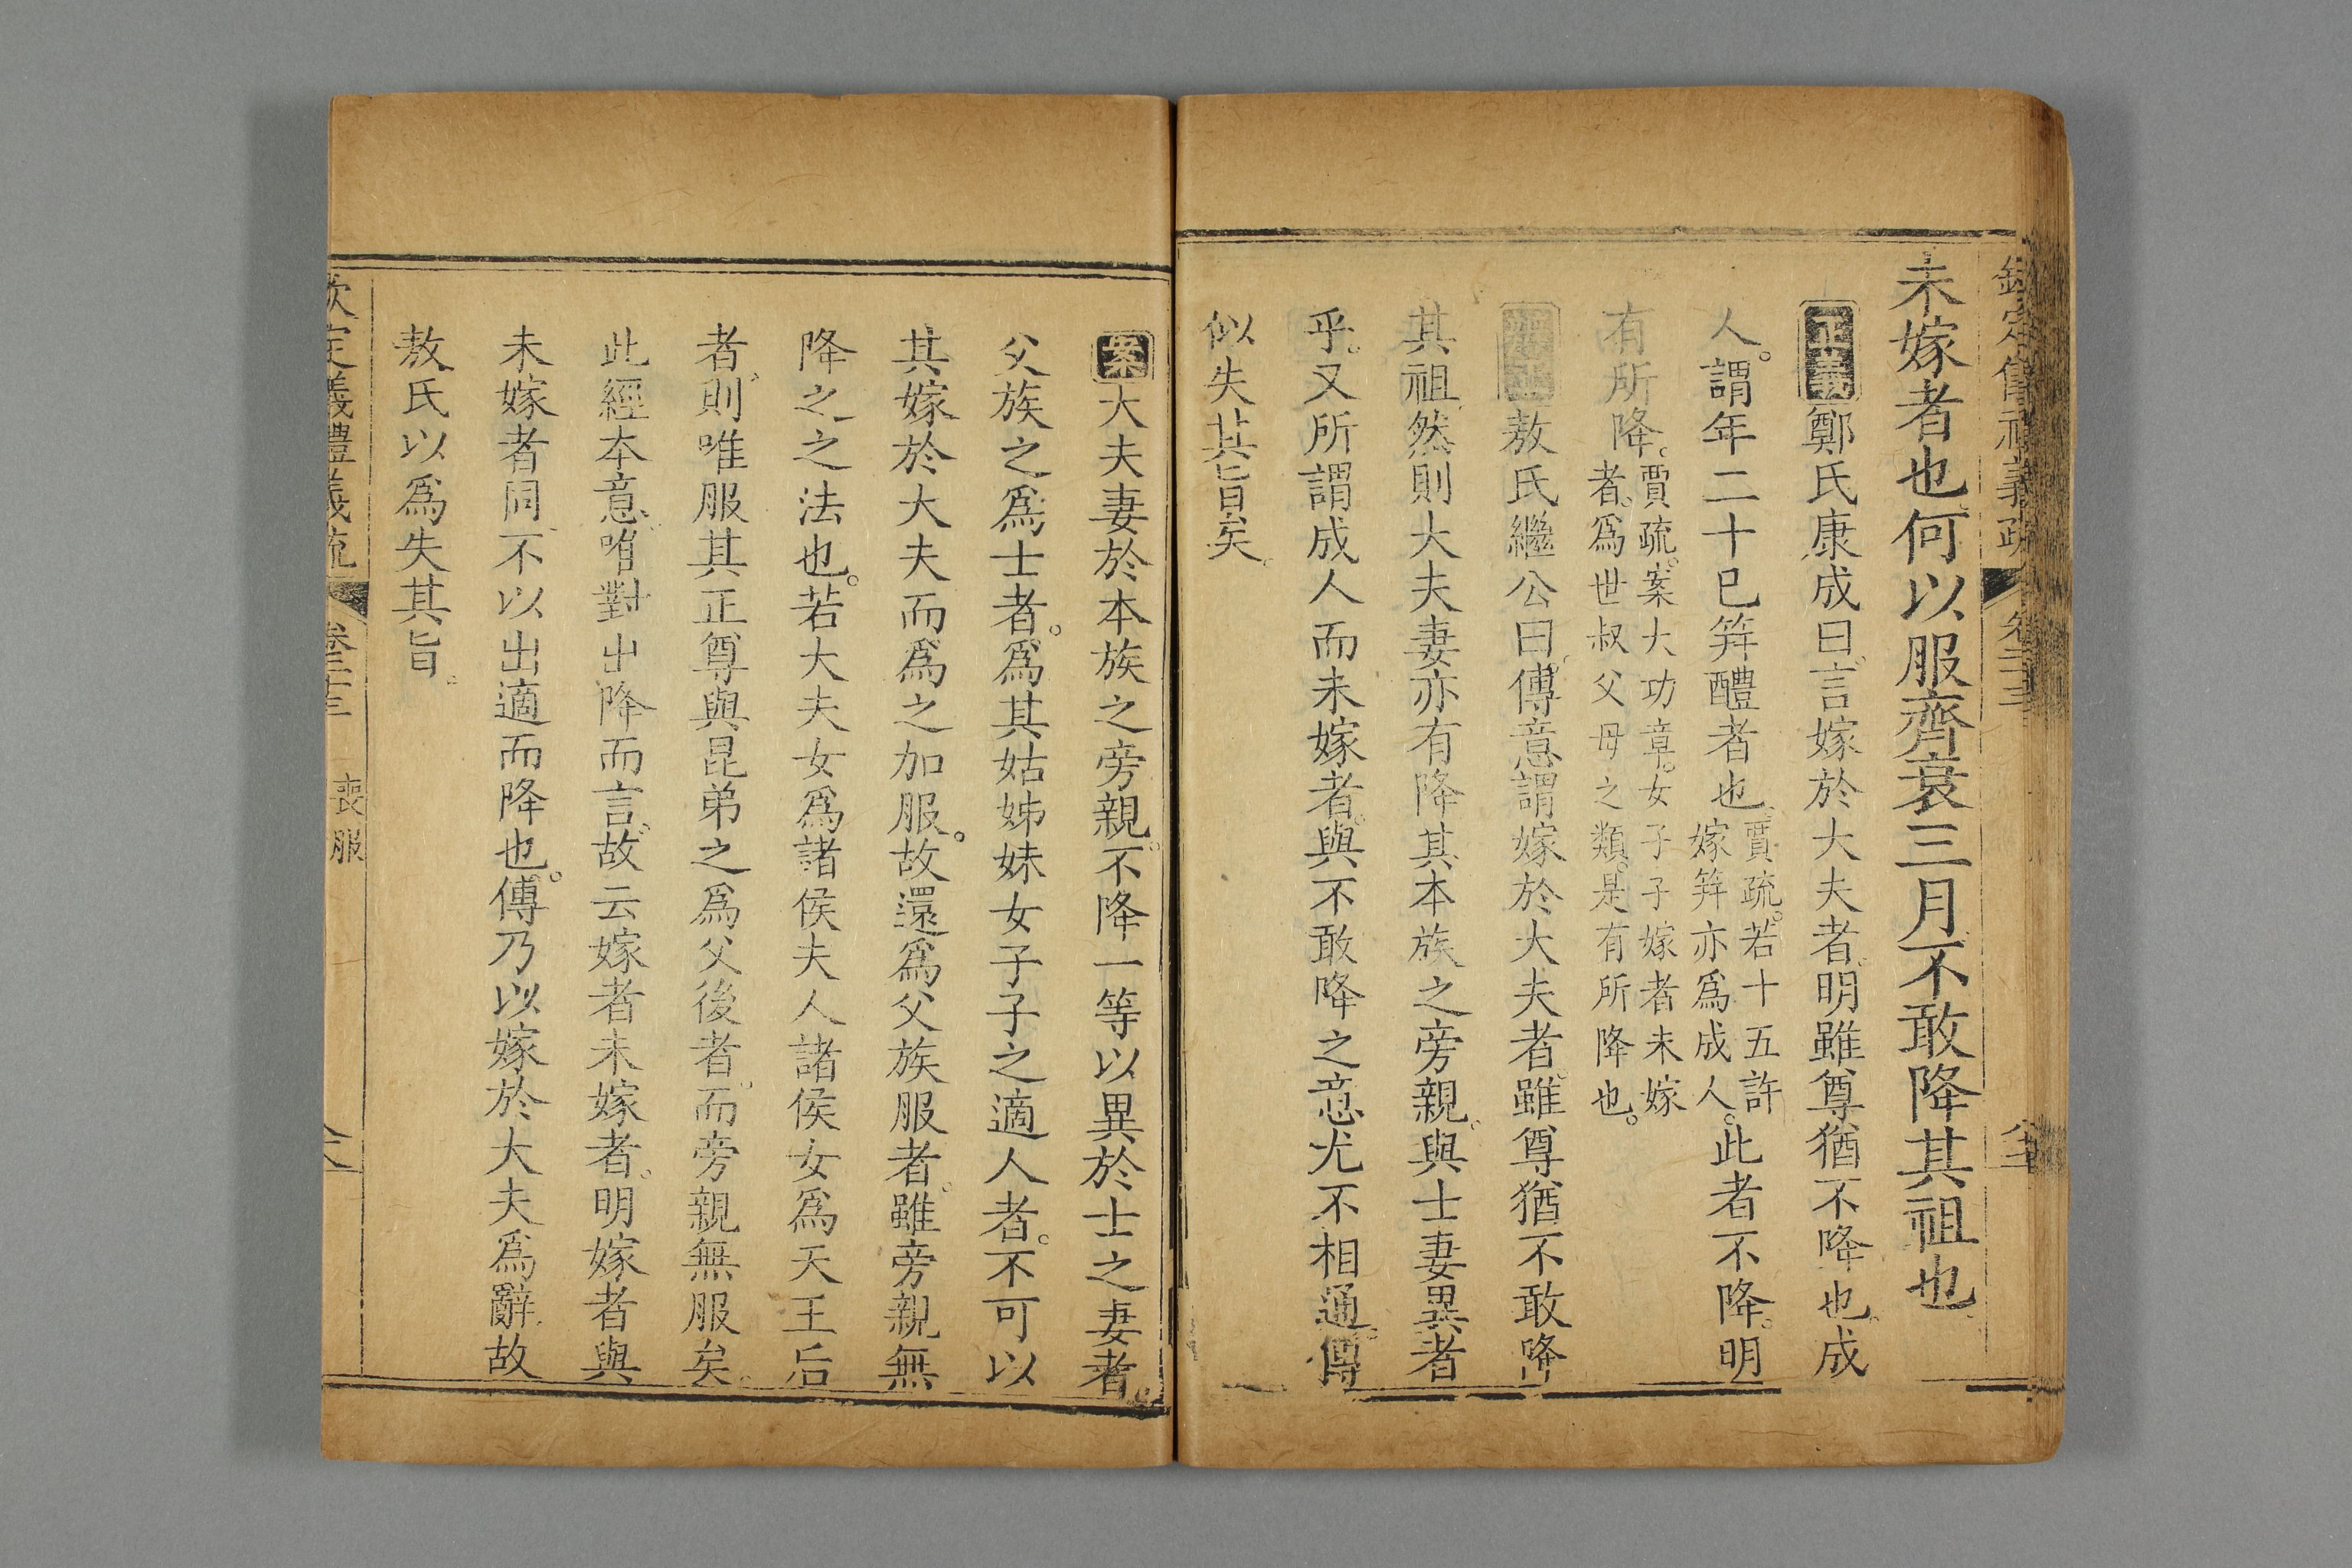 未嫁者也何以服齊衰三月不敢降其祖也
正義鄭氏康成曰言嫁於大夫者明雖尊猶不降也成
人。謂年二十已筓醴者也賈疏。若十五許嫁筓亦爲成人。此者不降。明
有所降。賈疏。案大功章。女子子嫁者未嫁者。爲世叔父母之類。是有所降也。
敖氏繼公曰傳意謂嫁於大夫者。雖尊猶不敢降
其祖然則大夫妻亦有降其本族之旁親。與士妻異者
乎。又所謂成人而未嫁者。與不敢降之意尤不相通。傳
似失其旨矣。
案大夫妻於本族之旁親。不降一等以異於士之妻者。
父族之爲士者。爲其姑姊妹女子子之適人者。不可以
其嫁於大夫而爲之加服。故還爲父族服者。雖旁親無
降之之法也。若大夫女爲諸侯夫人諸侯女爲天王后
者則唯服其正尊與昆弟之爲父後者。而旁親無服矣。
此經本意唯對出降而言故云嫁者未嫁者。明嫁者與
未嫁者同不以出適而降也。傳乃以嫁於大夫爲辭故
敖氏以爲失其旨。
欽定儀禮義疏 卷二十三 喪服